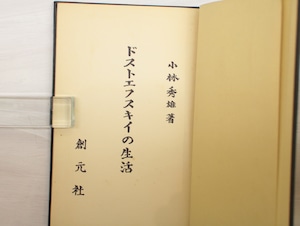 小林秀雄著
ドストエフスキイの生活
創元社